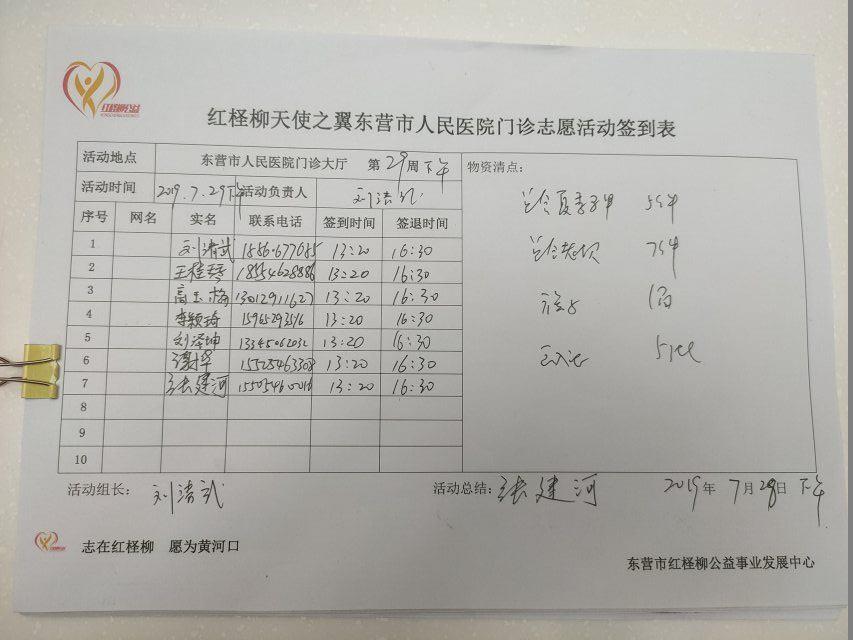 红柽柳公益
红柽柳天使之翼东营市人民医院门诊志愿活动签到表
活动地点 东营市人民医院门诊大厅 第29周下午 物资清点:
活动时间 2019.7.29下午 活动负责人 刘清武
序号 网名 实名 联系电话 签到时间 签退时间
1 刘清武 13:20 16:30
2 王桂琴 18554628886 13:20 16:30
3 高玉梅 13012911627 13:20 16:30
4 李颖琦 15965293516 13:20 16:30
5 刘泽坤 13345062032 13:20 16:30
6 谢华 15525463308 13:20 16:30
7 张建河 13:20 16:30
8
9
10
夏季 5件
7件
活动组长: 刘清武 活动总结: 张建河 2019年7月29日下午
志在红柽柳 愿为黄河口
东营市红柽柳公益事业发展中心